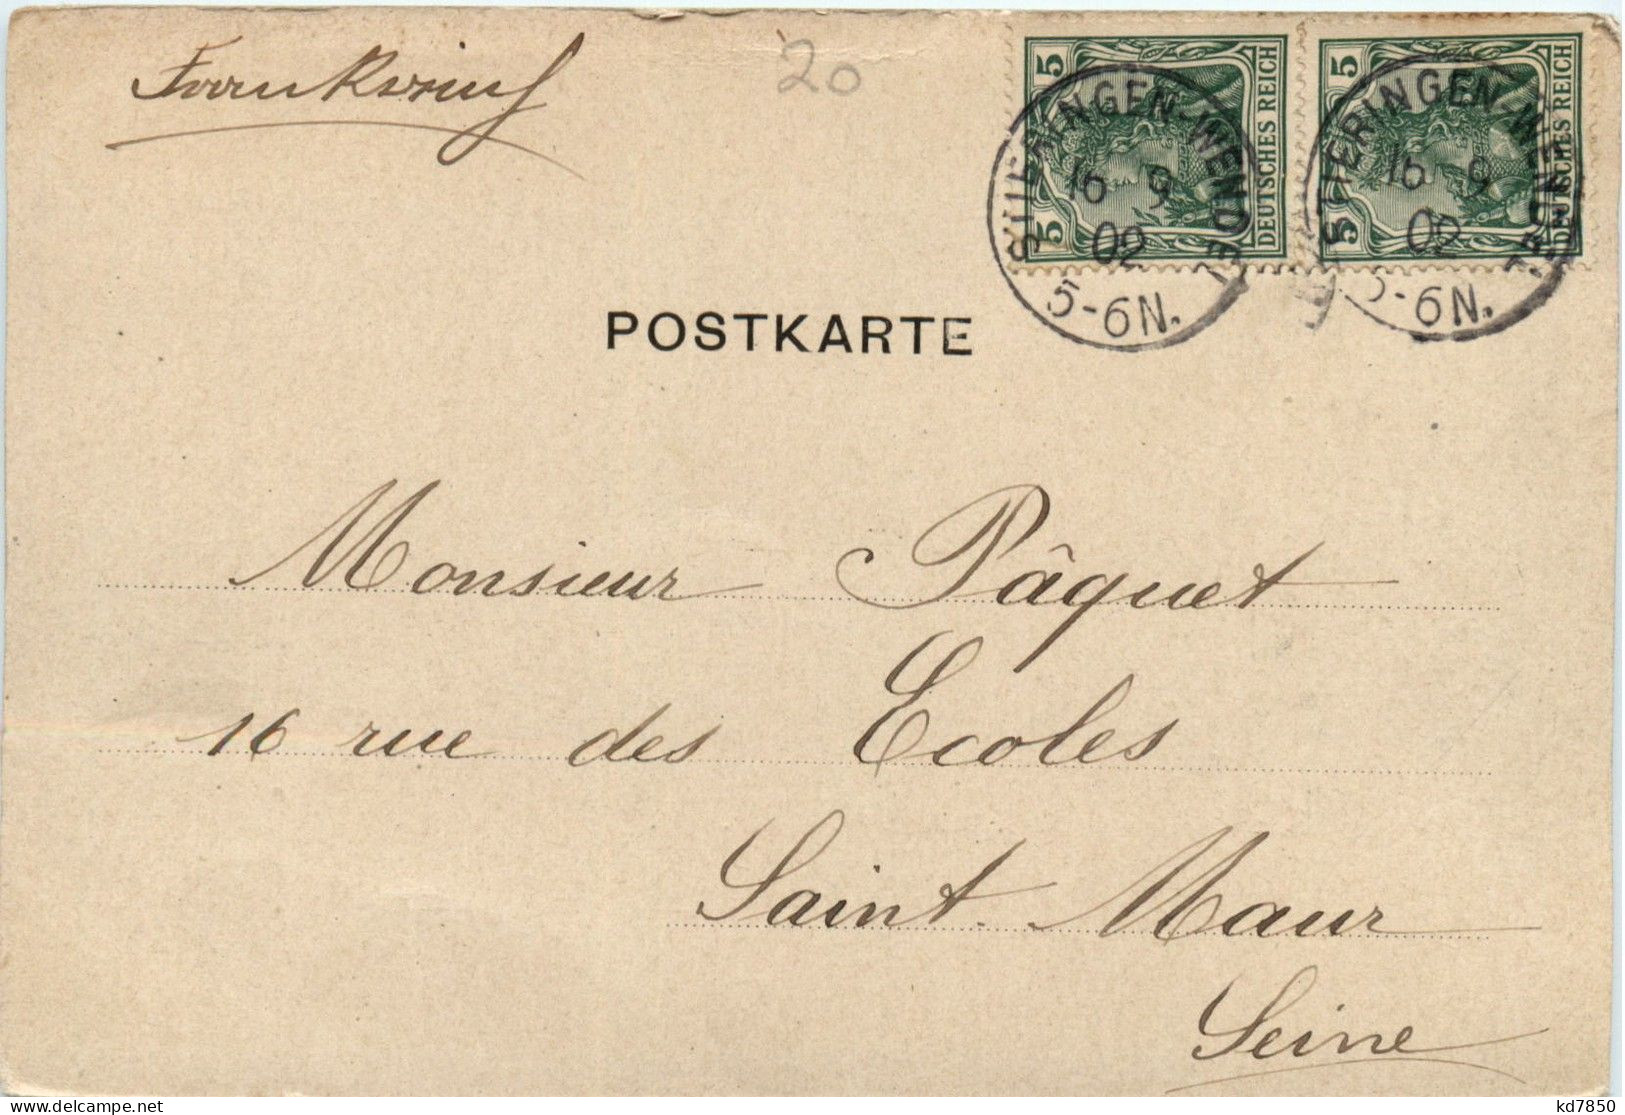 Frankreich
20
5 5 DEUTSCHES REICH
5 5 DEUTSCHES REICH
STIERINGEN-WENDEL
16 9
02
5-6N.
STIERINGEN-WENDEL
16 9
02
5-6N.
POSTKARTE
Monsieur Pâquet
16 rue des Ecoles
Saint-Maur
Seine
kd7850